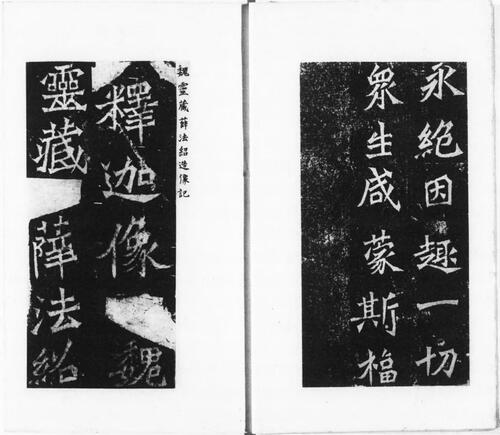 永絕因趣一切
衆生咸蒙斯福
魏靈藏薛法紹造像記
釋迦像魏
靈藏薛法紹